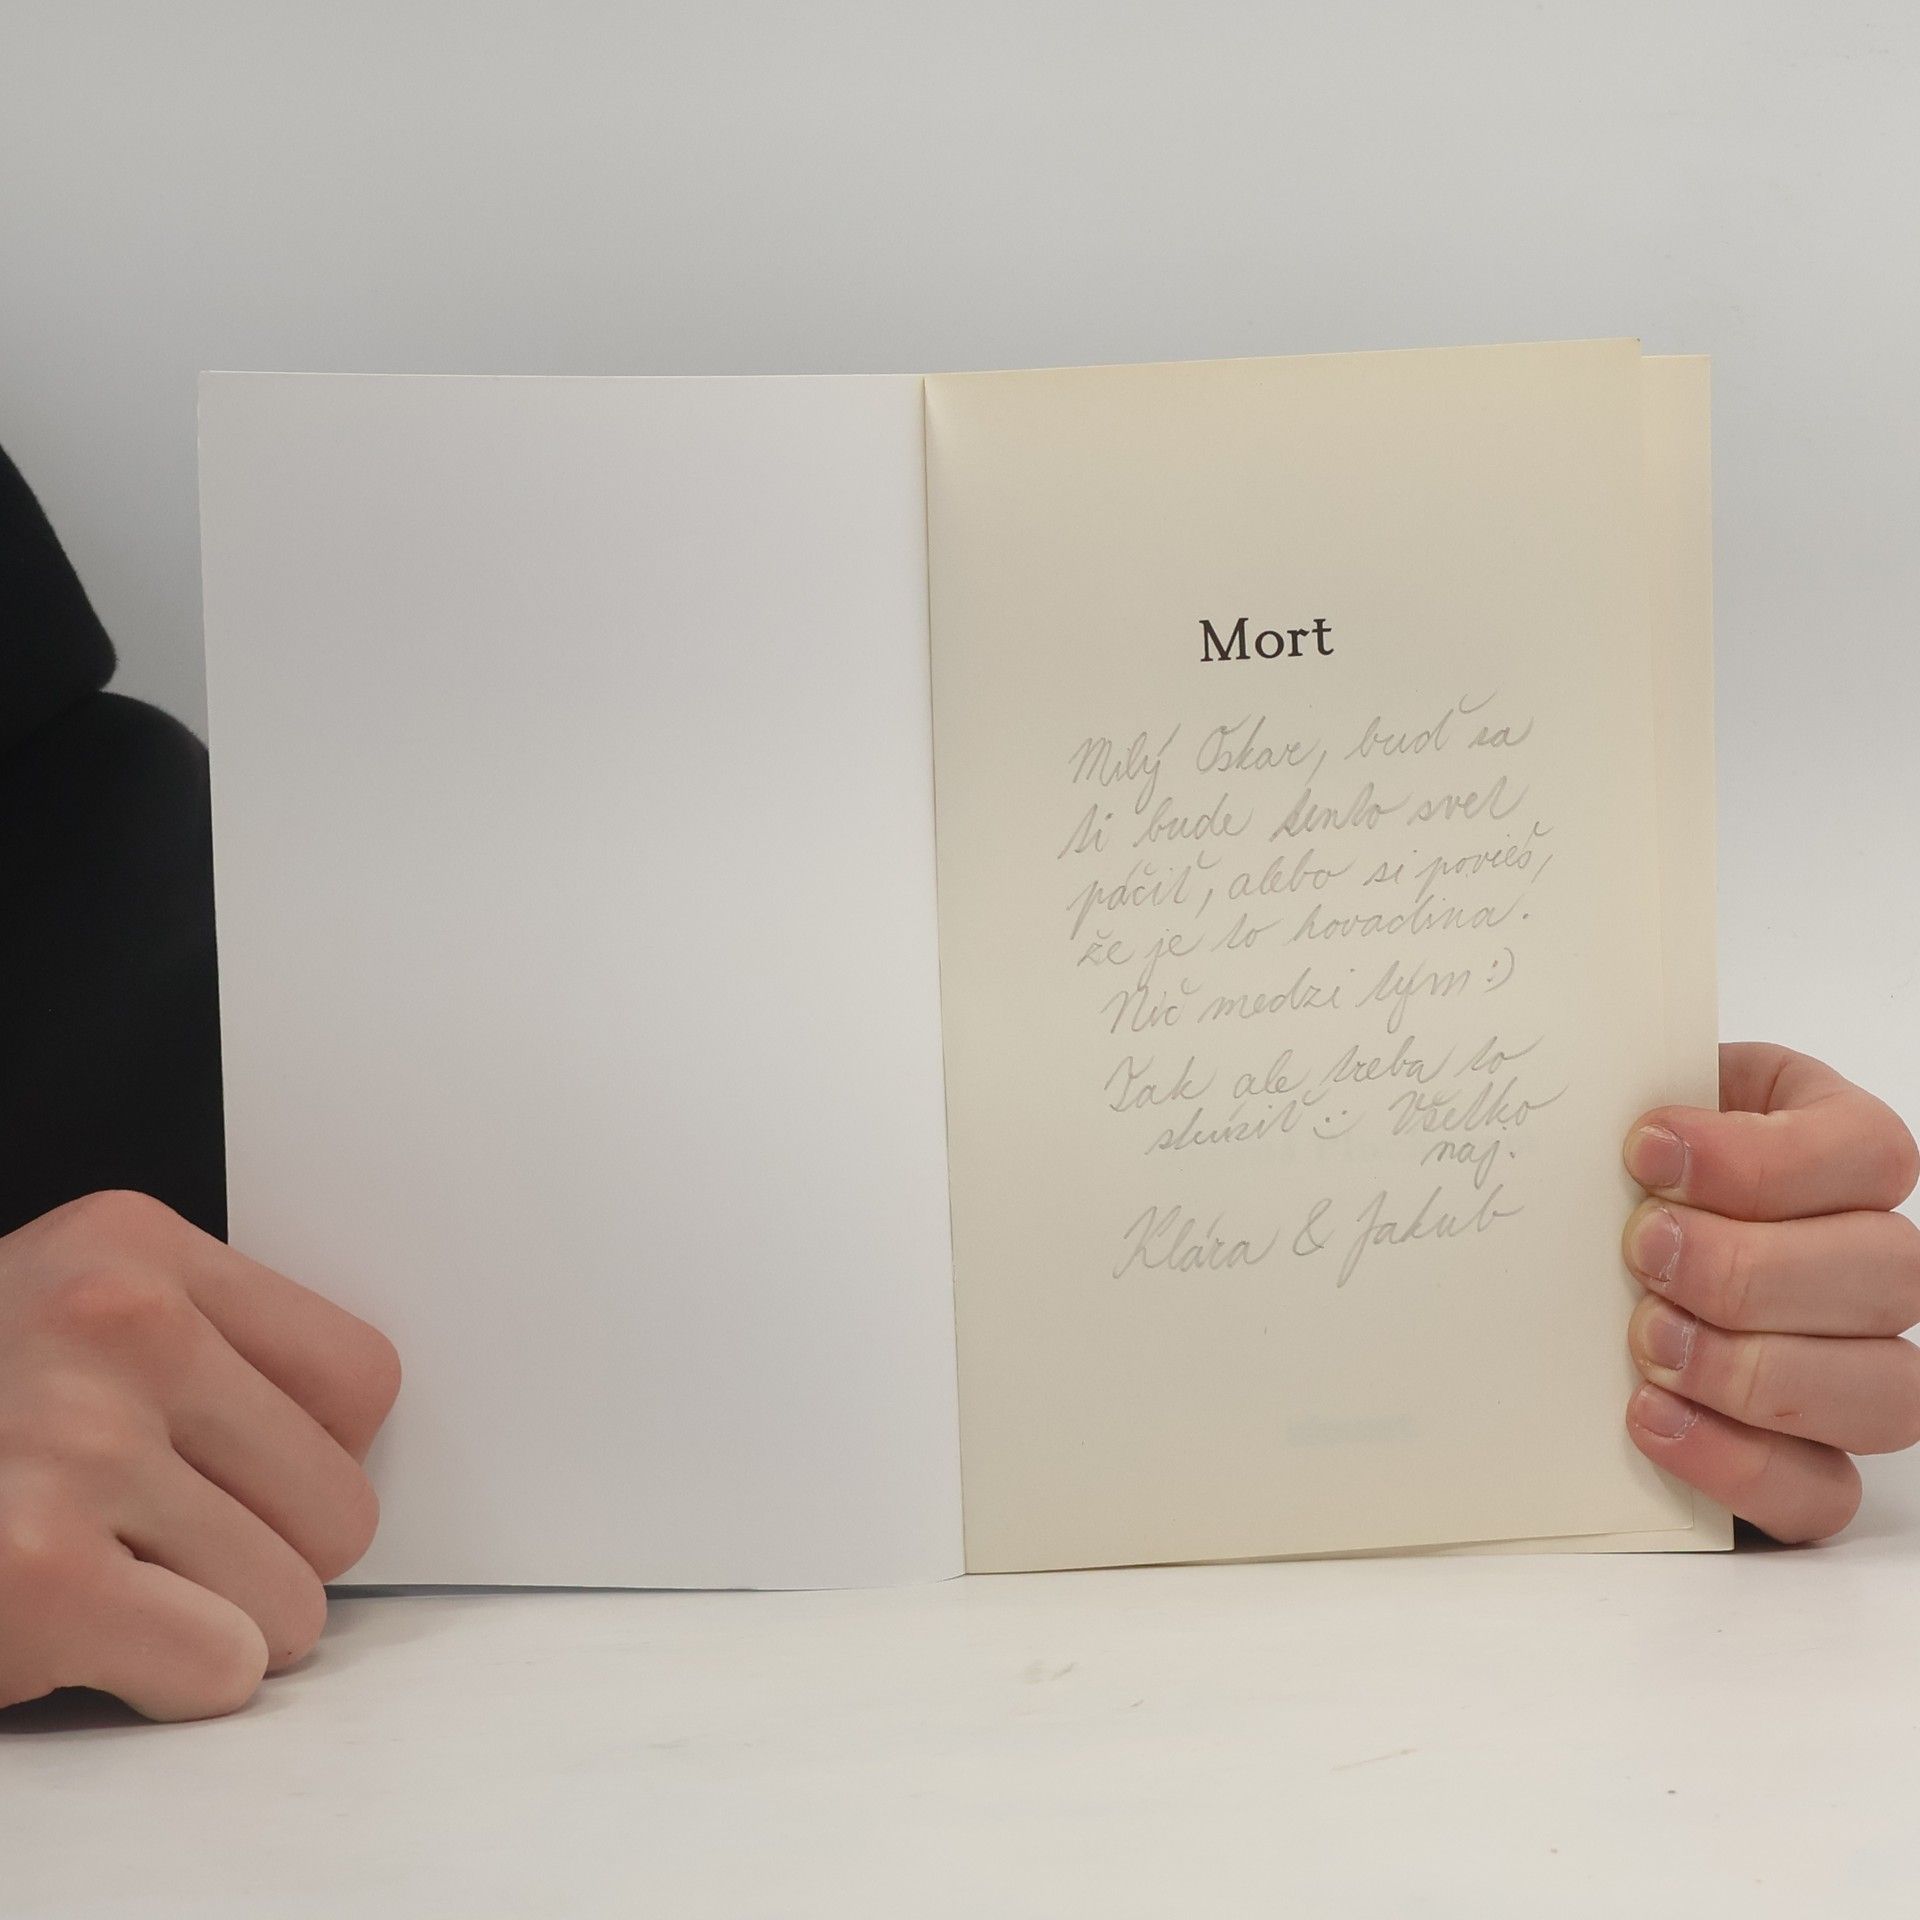 Mort
Milý Oskar, buď sa
ti bude tento svet
páčiť, alebo si povieš,
že je to hovadina.
Nič medzi tým :)
Tak ale treba to
skúsiť :) Všetko
naj.
Klára & Jakub